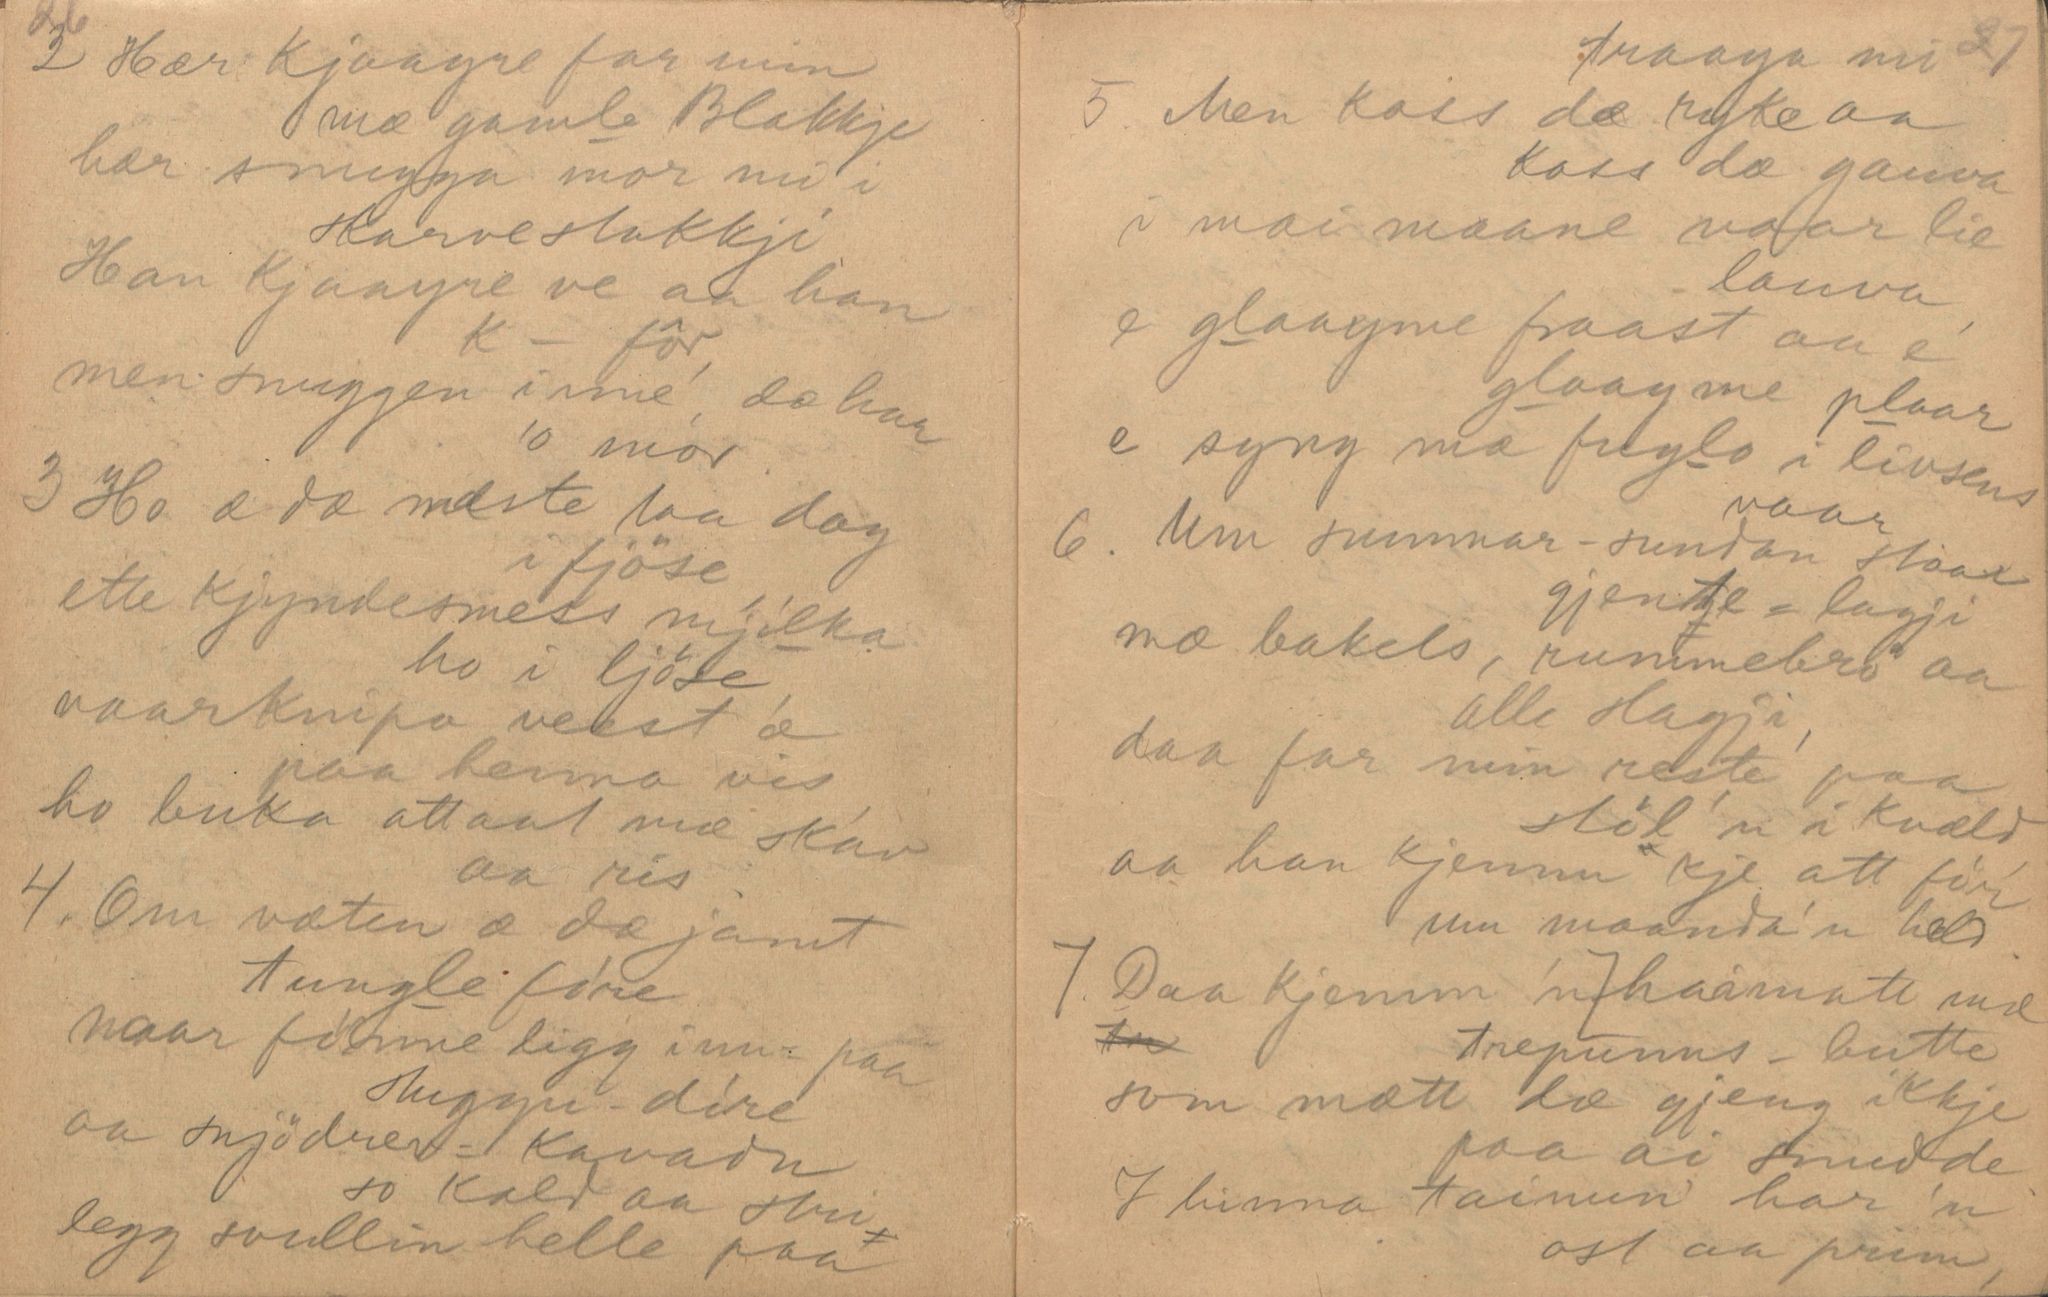 26
2 Hær kjaayre far min
mæ gamle Blakkje
hær snugga mor mi i
skarvestakkji
Han kjaayre ve aa han
k – för,
men snuggen inné, dæ har
'o mor.
3 Ho æ dæ mæste taa dag
i fjöse
ette kjyndesmess mjølka
ho i ljöse
vaarknipa veest 'æ
paa henna vis
ho buka attaat mæ skav
aa ris.
4. Om væten æ dæ jamt
tungle före
naar fönne ligg inn- paa
stuggu-döre
aa snjödrev-kavadn
so kald aa stri
legg svullin helle paa
27
traaya mi
5. Men koss dæ ryke aa
koss dæ gauva
i mai maane naar lie
lauva,
e glaayme fraast aa e
glaayme plaar
e syng mæ fuglo i livsens
vaar
6. Um summar-sundan staar
gjente-lagji
mæ bakels, rummebrö aa
alle slagji,
daa far min reste paa
stöl'n i kvæld
aa han kjemm kje att för
um maanda'n held.
7. Daa kjemm 'n haimatt mæ
trepunns-butte
som mætt dæ gjeng ikkje
paa ai snudde
I hinna tainun har 'n
ost aa prim,